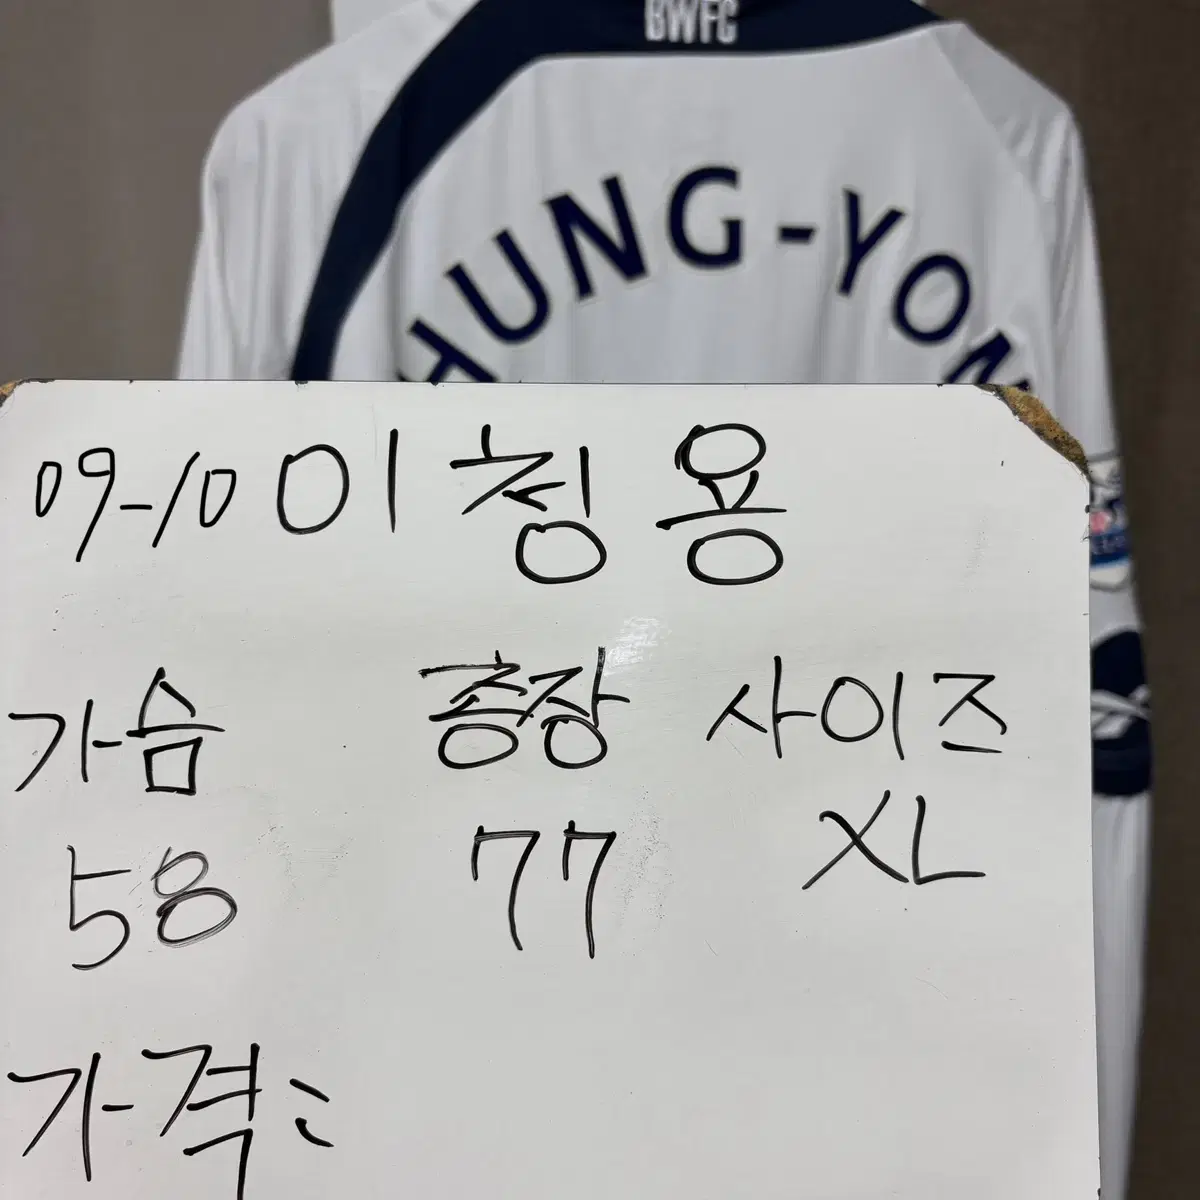 BWFC
HUNG-YON
09-10 이청용
가슴 총장 사이즈
58 77 XL
가격: